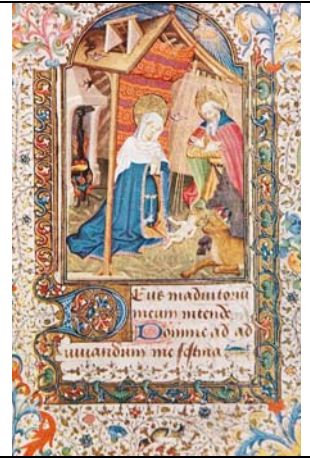 Eus in adiutoriū
meum intende
Domine ad ad
iuuandum me festina